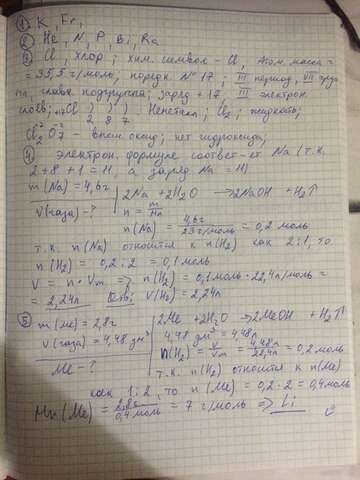 ① K, Fr,
② He, N, P, Bi, Ra
③ Cl, хлор; хим. символ – Cl, Атом. масса =
= 35,5 г/моль, порядк. № 17; III период, VII груп
па, главн. подгруппа; заряд +17, III электрон.
слоев; +17Cl ) ) ) Неметалл; Cl2; жидкость;
2 8 7
Cl2 O7 – высш. оксид; нет гидроксида;
④ Электрон. формуле соответ-ет Na (т.к.
2+8+1=11, а заряд Na = 11)
m(Na) = 4,6г
V(газа) – ?
2Na + 2H2O → 2NaOH + H2↑
n = m/Mr
n(Na) = 4,6г / 23г/моль = 0,2 моль
т.к. n(Na) относится к n(H2) как 2:1, то
n(H2) = 0,2 : 2 = 0,1 моль
V = n · Vm => n(H2) = 0,1моль · 22,4л/моль =
= 2,24л Ответ: V(H2) = 2,24л
⑤ m(Me) = 2,8г
V(газа) = 4,48 дм³
Me – ?
2Me + 2H2O → 2MeOH + H2↑
4,48 дм³ = 4,48л
n(H2) = V/Vm = 4,48л / 22,4л = 0,2 моль
т.к. n(H2) относится к n(Me)
как 1:2, то n(Me) = 0,2 · 2 = 0,4моль
Mr(Me) = 2,8г / 0,4моль = 7 г/моль => Li